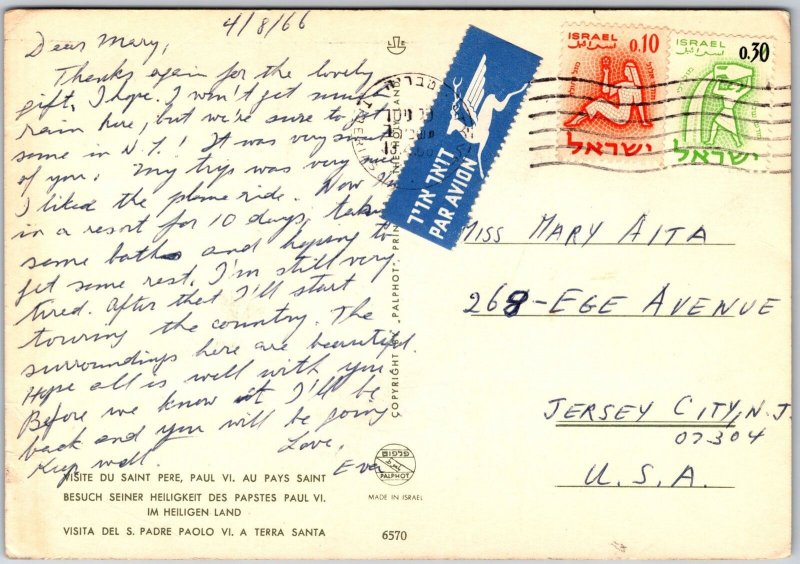 4/8/66
Dear Mary,
Thanks again for the lovely
gift, I hope I won't get much
rain here, but we're sure to get
some in N.J.! It was very sweet
of you. My trip was very nice
I liked the plane ride. Now I'm
in a resort for 10 days, taking
some baths and hoping to
get some rest. I'm still very
tired. After that I'll start
touring the country. The
surroundings here are beautiful.
Hope all is well with you.
Before we know it I'll be
back and you will be going
Love,
Keep well. Eva
VISITE DU SAINT PERE, PAUL VI. AU PAYS SAINT
BESUCH SEINER HEILIGKEIT DES PAPSTES PAUL VI.
IM HEILIGEN LAND
VISITA DEL S. PADRE PAOLO VI. A TERRA SANTA
COPYRIGHT BY "PALPHOT" PRIN
THE HOLY LAND
פלפוט
PALPHOT
MADE IN ISRAEL
6570
דואר אויר
PAR AVION
TIBERIAS
ISRAEL 0.10
اسرائيل
ישראל
ISRAEL 0.30
اسرائيل
ישראל
MISS MARY AITA
268-EGE AVENUE
JERSEY CITY, N.J.
07304
U.S.A.